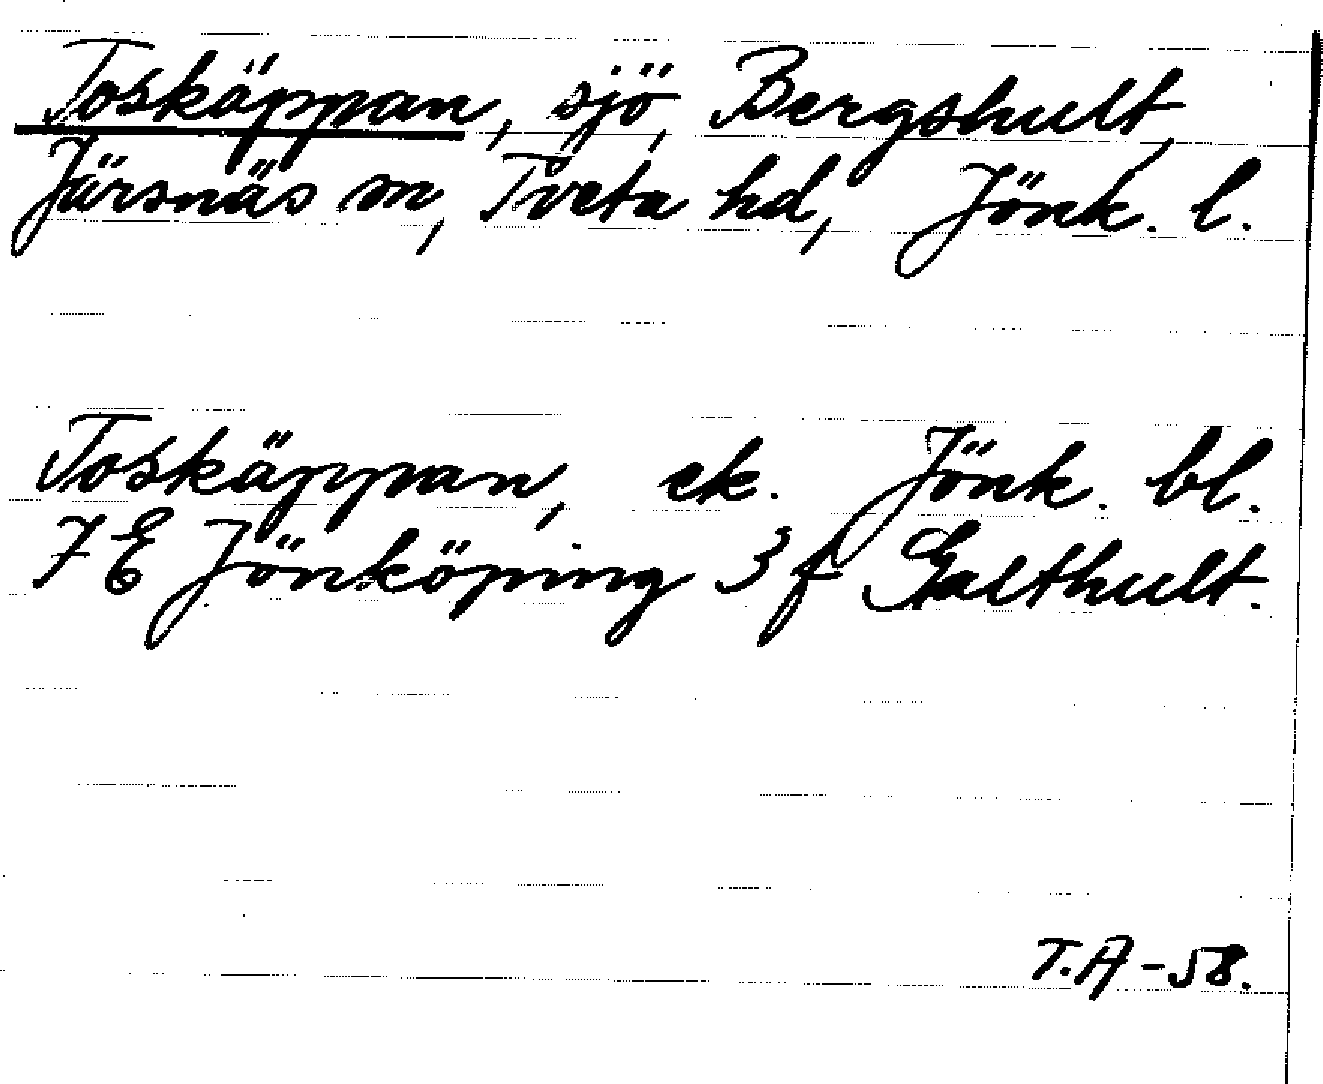 Toskäppan, sjö, Bergshult,
Järsnäs sn, Tveta hd, Jönk. l.
Toskäppan, ek. Jönk. bl.
7E Jönköping 3 f Galthult.
T.A -58.